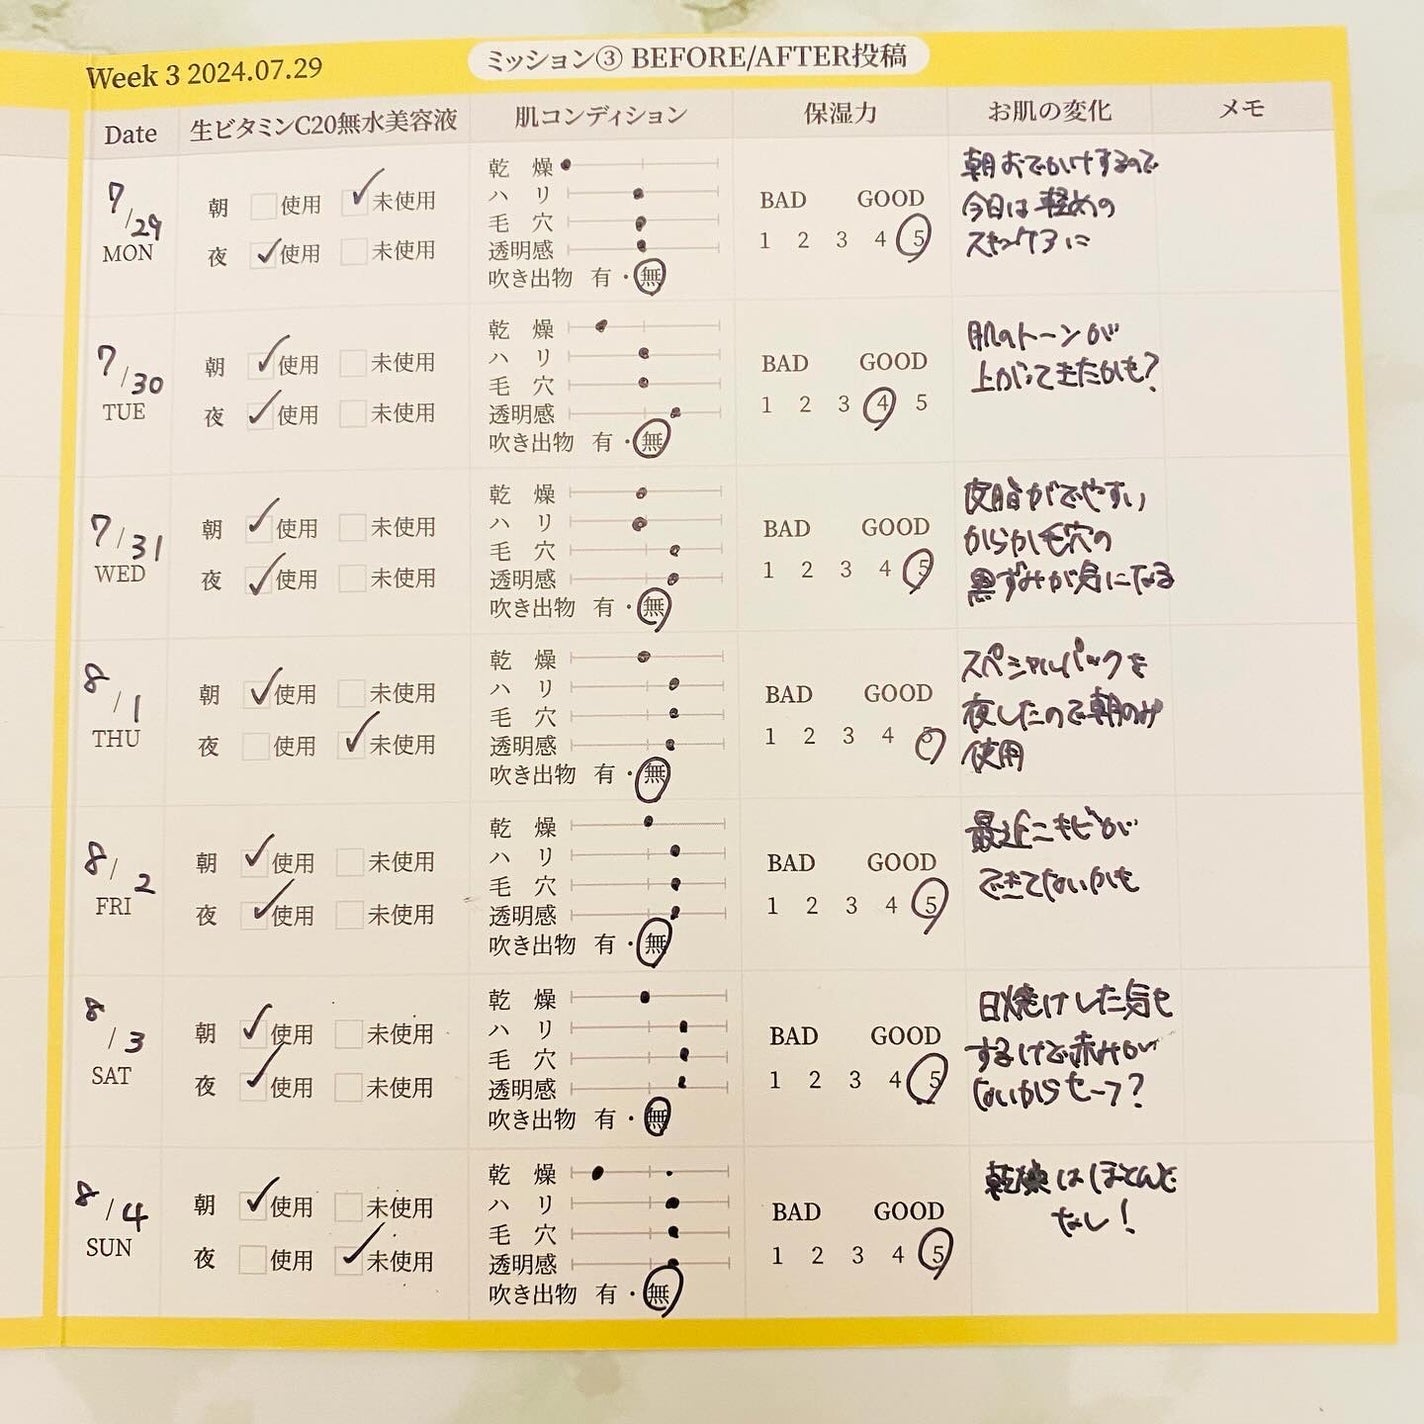 Week 3 2024.07.29
ミッション③ BEFORE/AFTER投稿
Date 生ビタミンC20無水美容液 肌コンディション 保湿力 お肌の変化 メモ
7/29
MON
朝 使用 未使用
夜 使用 未使用
乾燥
ハリ
毛穴
透明感
吹き出物 有・無
BAD GOOD
1 2 3 4 5
朝おでかけするので
今日は軽めの
スキンケアに
7/30
TUE
朝 使用 未使用
夜 使用 未使用
乾燥
ハリ
毛穴
透明感
吹き出物 有・無
BAD GOOD
1 2 3 4 5
肌のトーンが
上がってきたかも?
7/31
WED
朝 使用 未使用
夜 使用 未使用
乾燥
ハリ
毛穴
透明感
吹き出物 有・無
BAD GOOD
1 2 3 4 5
皮脂がでやすい
からか毛穴の
黒ずみが気になる
8/1
THU
朝 使用 未使用
夜 使用 未使用
乾燥
ハリ
毛穴
透明感
吹き出物 有・無
BAD GOOD
1 2 3 4 5
スペシャルパックを
夜したので朝のみ
使用
8/2
FRI
朝 使用 未使用
夜 使用 未使用
乾燥
ハリ
毛穴
透明感
吹き出物 有・無
BAD GOOD
1 2 3 4 5
最近ニキビが
できてないかも
8/3
SAT
朝 使用 未使用
夜 使用 未使用
乾燥
ハリ
毛穴
透明感
吹き出物 有・無
BAD GOOD
1 2 3 4 5
日焼けした気も
するけど赤みが
ないからセーフ?
8/4
SUN
朝 使用 未使用
夜 使用 未使用
乾燥
ハリ
毛穴
透明感
吹き出物 有・無
BAD GOOD
1 2 3 4 5
乾燥はほとんど
なし!